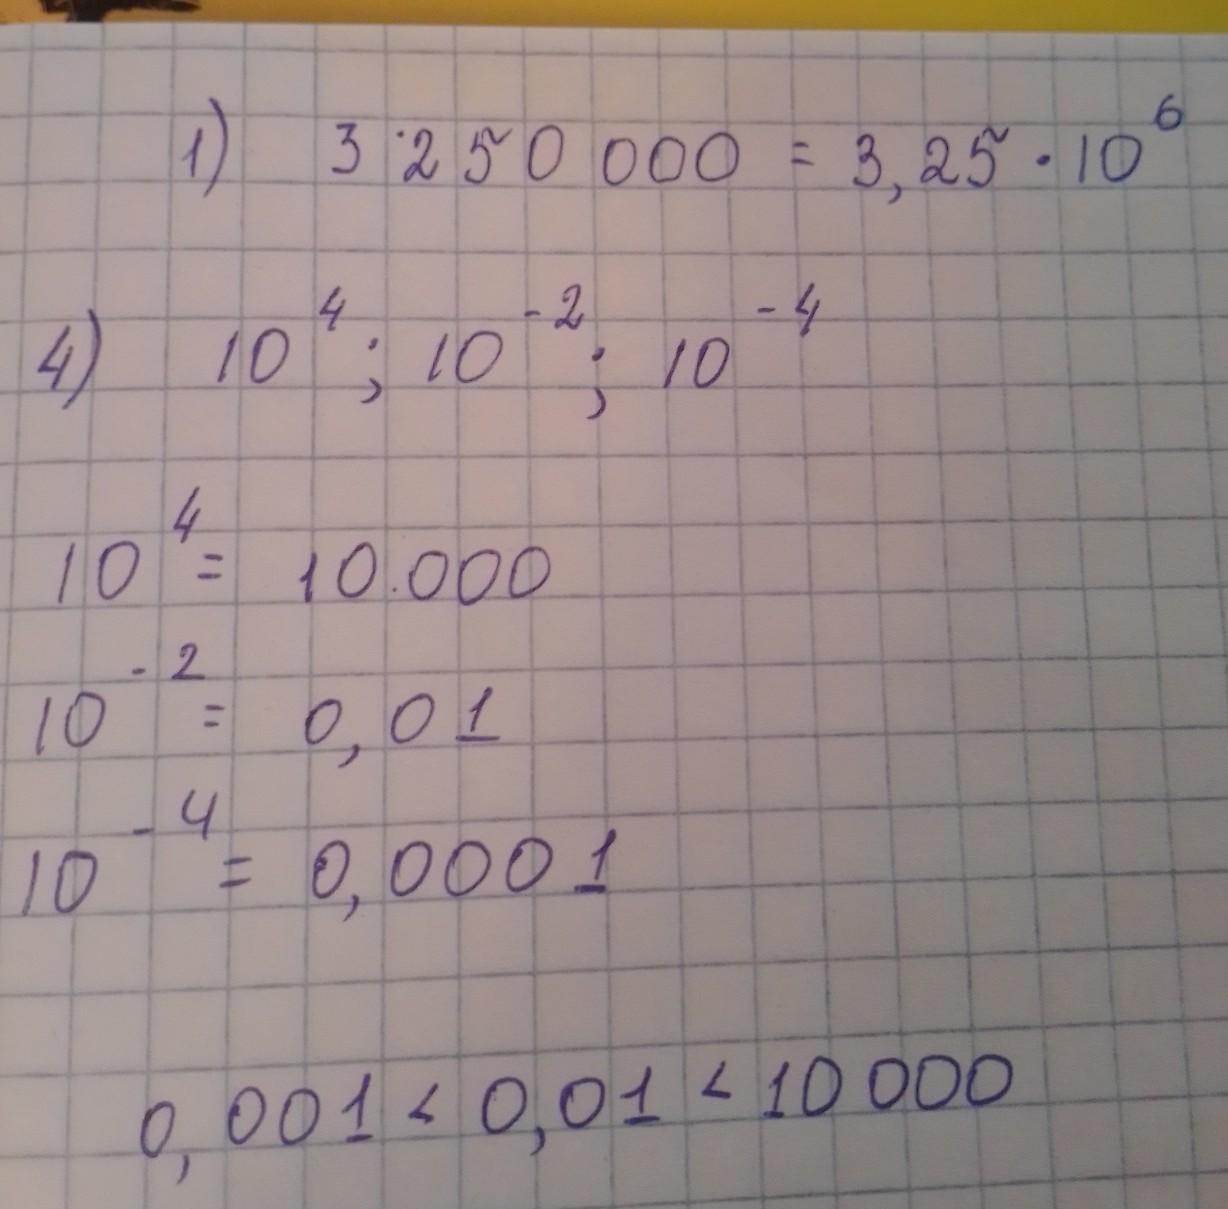 1) 3 250 000 = 3,25 · 10⁶
4) 10⁴; 10⁻²; 10⁻⁴
10⁴ = 10.000
10⁻² = 0,01
10⁻⁴ = 0,0001
0,001 < 0,01 < 10 000